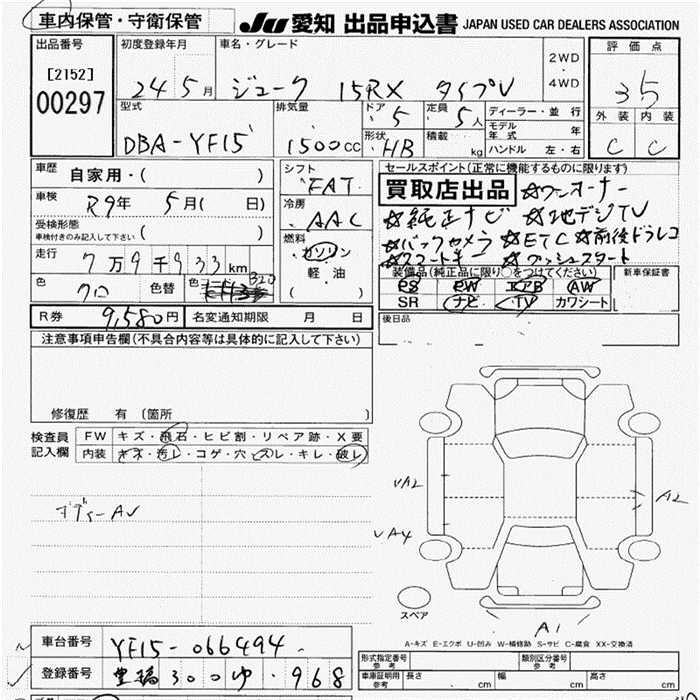 車内保管・守衛保管
JU 愛知 出品申込書 JAPAN USED CAR DEALERS ASSOCIATION
出品番号 初度登録年月 車名・グレード 2WD ・ 4WD 評価点
[2152] 24 5月 ジューク 15RX タイプV 3.5
00297
型式 排気量 ドア 5 定員 5人 ディーラー・並行 外装 内装
DBA-YF15 1500cc 形状 HB 積載 kg モデル年式 年 C C
ハンドル 左・右
車歴 自家用・( ) シフト FAT セールスポイント(正常に機能するものに限ります)
車検 R9年 5月( 日) 冷房 AAC 買取店出品 ☆ワンオーナー
受検形態 ( ) ☆純正ナビ ☆地デジTV
車検付きのみ記入して下さい
燃料 ガソリン ☆バックカメラ ☆ETC ☆前後ドラレコ
走行 7万9千933km 軽油 ☆スマートキー ☆プッシュスタート
色 クロ 色替 色 B20 ( ) 装備品(純正品に限り○をつけてください) 新車保証書
PS PW エアB AW
SR ナビ TV カワシート
R券 9,580円 名変通知期限 月 日 後日品
注意事項申告欄(不具合内容等は具体的に記入して下さい)
修復歴 有 (箇所 )
検査員 FW キズ・飛石・ヒビ割・リペア跡・X要
記入欄 内装 キズ・汚レ・コゲ・穴・スレ・キレ・破レ
UA2 A2
ボディーAU
UA4
スペア
A1
A-キズ E-エクボ U-凹み W-補修跡 S-サビ C-腐食 XX-交換済
車台番号 YF15-066494
形式指定番号 参考 類別区分番号 参考
登録番号 豊橋 300 ゆ 968
車庫証明用 参考 長さ cm 幅 cm 高さ cm